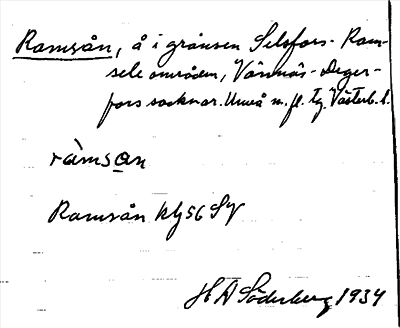 Ramsån, å i gränsen Selsfors- Ram-
sele områden, Vännäs- Deger-
fors socknar. Umeå m. fl. tg. Västerb. l.
ràmsan
Ramsån Kbl 56 SV
H A Söderberg 1934